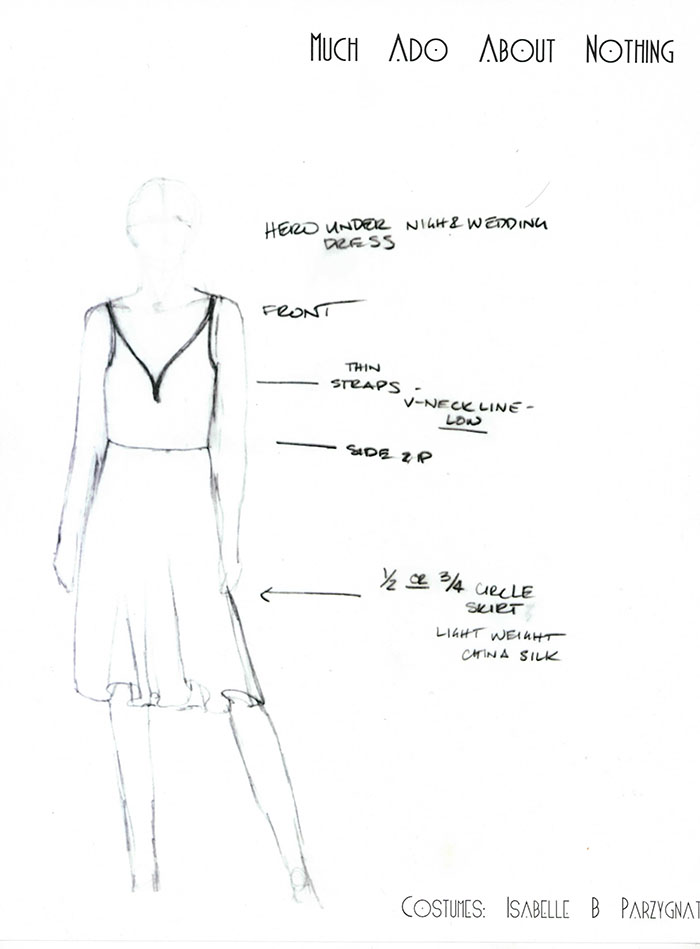 MUCH ADO ABOUT NOTHING
HERO UNDER NIGH & WEDDING
DRESS
FRONT
THIN
STRAPS -
V-NECKLINE -
LOW
SIDE ZIP
1/2 OR 3/4 CIRCLE
SKIRT
LIGHT WEIGHT
CHINA SILK
COSTUMES: ISABELLE B PARZYGNAT